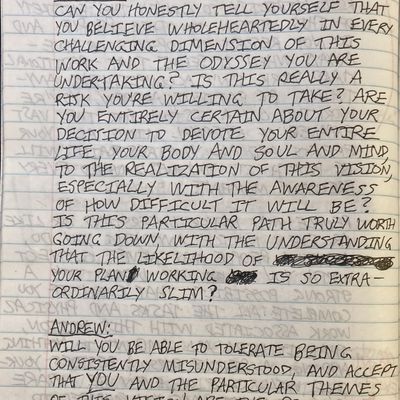 CAN YOU HONESTLY TELL YOURSELF THAT
YOU BELIEVE WHOLEHEARTEDLY IN EVERY
CHALLENGING DIMENSION OF THIS
WORK AND THE ODYSSEY YOU ARE
UNDERTAKING? IS THIS REALLY A
RISK YOU'RE WILLING TO TAKE? ARE
YOU ENTIRELY CERTAIN ABOUT YOUR
DECISION TO DEVOTE YOUR ENTIRE
LIFE, YOUR BODY AND SOUL AND MIND,
TO THE REALIZATION OF THIS VISION,
ESPECIALLY WITH THE AWARENESS
OF HOW DIFFICULT IT WILL BE?
IS THIS PARTICULAR PATH TRULY WORTH
GOING DOWN, WITH THE UNDERSTANDING
THAT THE LIKELIHOOD OF
YOUR PLAN WORKING IS SO EXTRA-
ORDINARILY SLIM?
ANDREW:
WILL YOU BE ABLE TO TOLERATE BEING
CONSISTENTLY MISUNDERSTOOD, AND ACCEPT
THAT YOU AND THE PARTICULAR THEMES
OF THIS VISION ARE THE